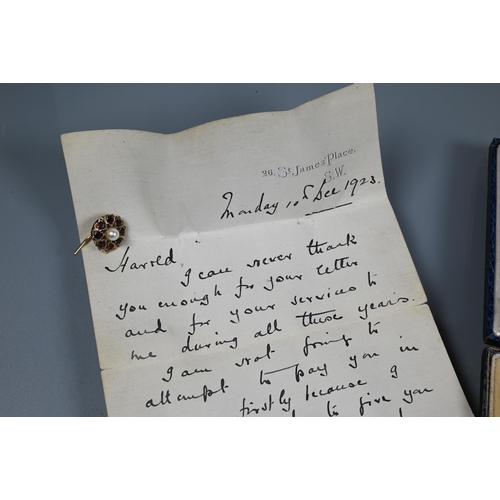 26, St. James' Place,
S.W.
Monday 10th Dec 1923.
Harold
I can never thank
you enough for your letter
and for your services to
me during all these years.
I am not going to
attempt to pay you in
firstly because I
to give you